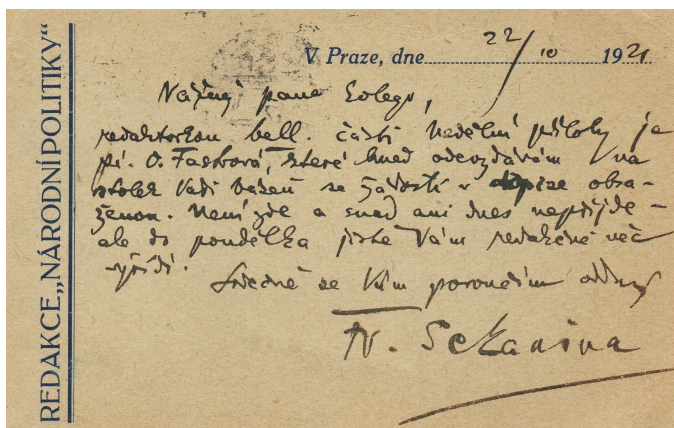 REDAKCE „NÁRODNÍ POLITIKY“
V Praze, dne 22/10 1921
Vážený pane kolego,
redaktorkou bell. části nedělní přílohy je
pí. O. Fastrová, které hned odevzdávám na
stolek Vaši báseň se žádostí v dopise obsa-
ženou. Není zde a snad ani dnes nepřijde -
ale do pondělka jistě Vám redakčně věc
vyřídí.
Srdečně se Vám poroučím oddaný
Fr. Sekanina